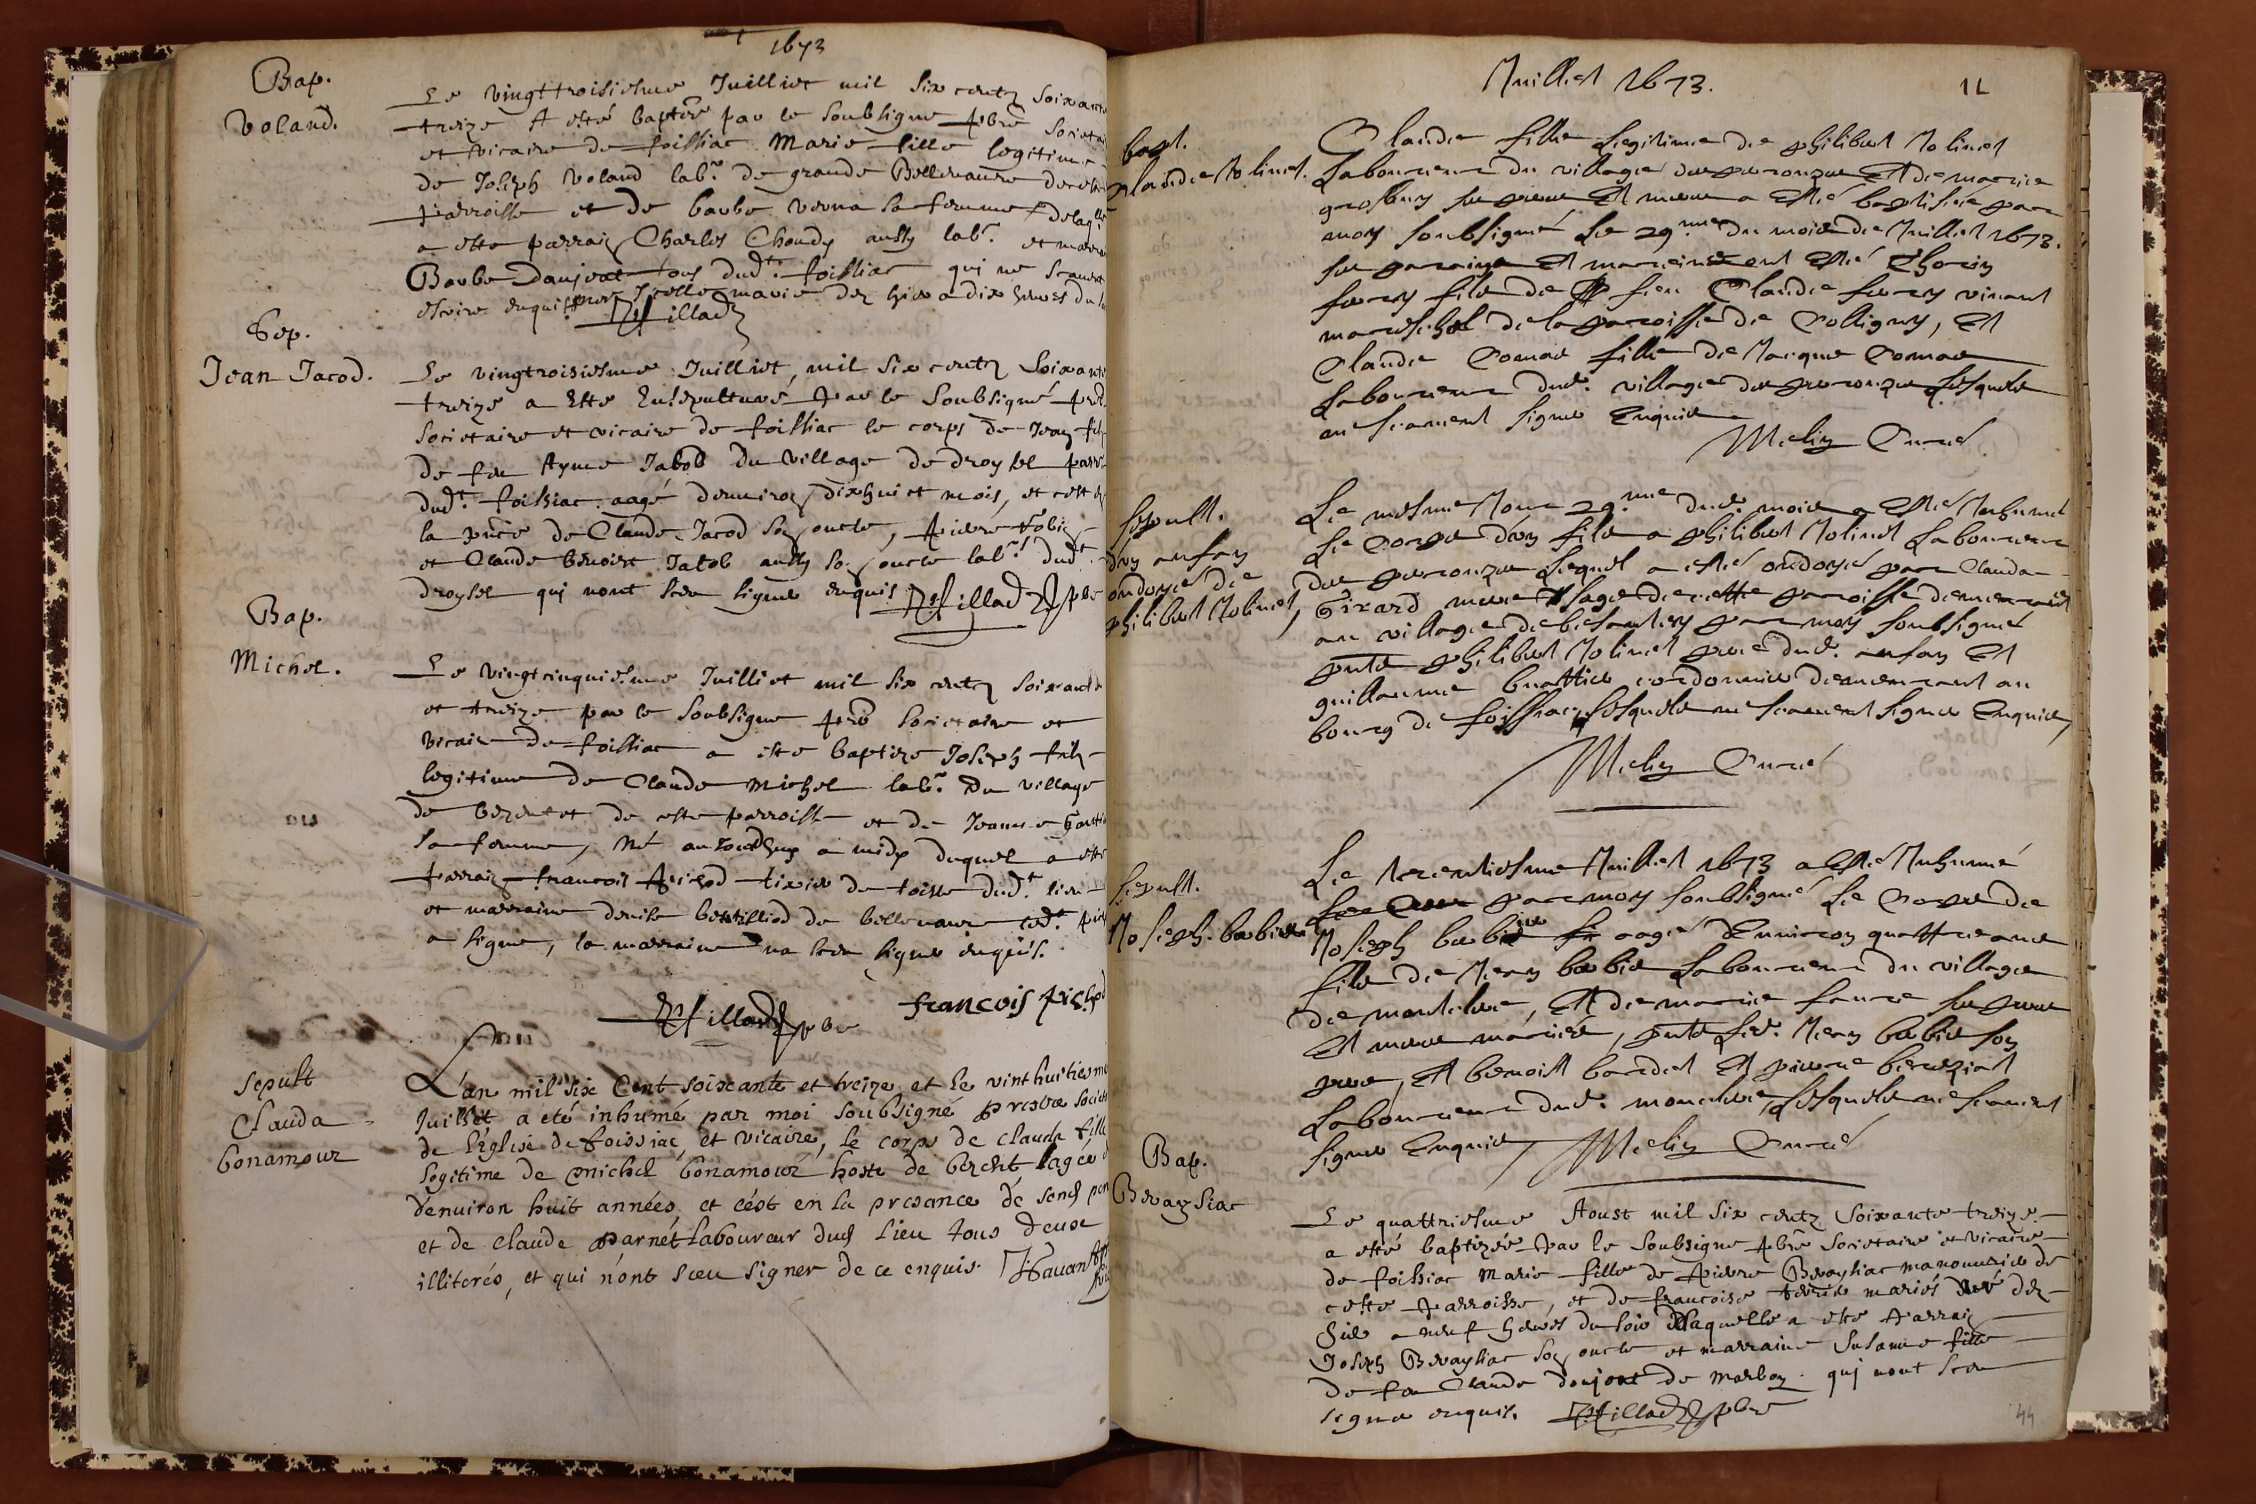 1673
Bap.
Voland.
Le vingttroisiesme Juilliet mil six centz soixante
treize A esté baptizé par le soubsigne pbre societai
et vicaire de foissiac Marie fille legitime
de Joseph Voland lab.r de grande Bellevauvre de ceste
parroisse et de barbe Verna sa femme de laqlle
a este parrain Charles Choudy aussy lab.r et marrai
Barbe Danjeat tous dudt foissiac qui ne scavent
escrire enquis Icelle marie dez hier a dix heures du
Sep.
Jean Jacod.
Le vingtroisiesme Juilliet, mil six centz Soixante
treize a Este Ensepulturé par le Soubsigné preb
Societaire et vicaire de foissiac le corps de Jean filz
de feu Ayme Jacod du village de droysel parr
dudt. foissiac aagé denviron dixhuict mois, et cest en
la pnce de Claude Jacod son oncle, Pierre
et Claude benoist Jacob aussy son oncle lab.r dudt
droysel qui nont sceu signer enquis pbre
Bap.
Michel.
Le vingtcinquiesme Juilliet mil six centz soixante
et treize par le Soubsigne prb societaire et
vicaire de foissiac a este baptize Joseph filz
legitime de Claude Michel lab.r du village
de bezent et de ceste parroisse et de Jeanne
sa femme, Né aujourdhuy a midy duquel a esté
parrain francois Pichod tixier de toille dudt. lieu
et marraine denise de bellevavre ledt
a signe, la marraine na sceu signer enquis.
pbre francois Pichod
Sepult
Clauda
bonamour
L'an mil six Cent soixante et treize et le vint huitiesme
Juillet a eté inhumé par moi soubsigné prestre societ
de l'église de foissiac, et vicaire, le corps de clauda fille
legitime de michel bonamour hoste de bezent agée
d'environ huit années, et cést en la presance de sond per
et de claude parnet laboureur dud lieu tous deux
illiterés, et qui n'ont sceu signer de ce enquis.
Juillet 1673.
11
bapt.
Claudie Molinet.
Claudie fille legitime de philibert Molinet
Laboureur du village de peronze Et de marie
grosbuy ses pere Et mere a Esté baptisée par
moy soubsigné Le 29.me du moid de Juillet 1673.
ses parrain Et marreine ont Esté
fils de feu Claude vivant
mareschal de la paroisse de Colligny, Et
Claudie Comas fille de Jacque Comas
Laboureur dud. village de peronze lesquels
ne scavent signer Enquis
Melin Curé
sepult.
d'un enfan
ondoyé de
philibert Molinet,
Le mesme Jour 29.me dud. mois a Esté Inhumé
Le Corps d'un fils a philibert Molinet Laboureur
de peronze lequel a esté ondoyé par Clauda
Girard mere sage de cette paroisse demeurant
au village de par moy soubsigné
pnts philibert Molinet pere dud. enfan Et
guillaume cordonnier demeurant au
bourg de foissiac, lesquels ne scavent signer Enquis,
Melin Curé
sepult.
Joseph. barbier
Le trentiesme Juillet 1673 a Esté Inhumé
par moy soubsigné Le Corps de
Joseph barbier aagé Denviron quattre ans
fils de Jean barbier Laboureur du village
de, Et de marie faure ses pere
Et mere mariés, pnts led. Jean barbier son
pere, Et benoist bardet Et pierre
Laboureurs dud. lesquels ne scavent
signer Enquis Melin Curé
Bap.
Brayssiac
Le quattriesme Aoust mil six centz Soixante treize
a esté baptizée par le soubsigne pbre Societaire et vicaire
de foissiac Marie fille de Pierre Brayssiac manouvrier de
ceste parroisse, et de francoise mariés Né dez
hier a neuf heures du soir de laquelle a este Parrain
Joseph Brayssiac son oncle et marraine Susanne fille
de feu Claude donjont de marbos qui nont sceu
signer enquis. pbre
44